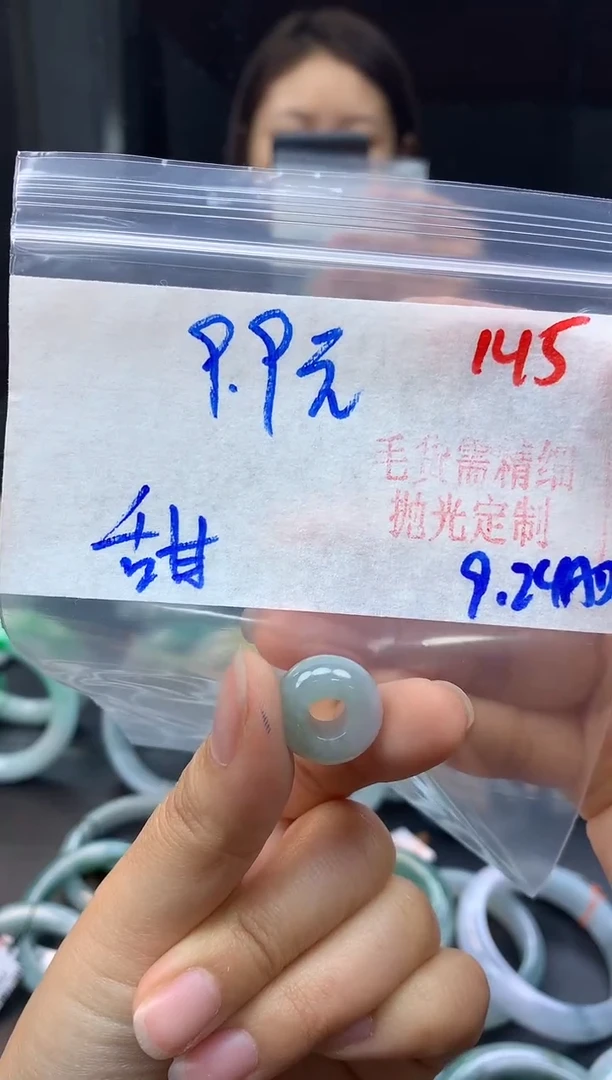 9.9元
145
毛货需精细
抛光定制
甜